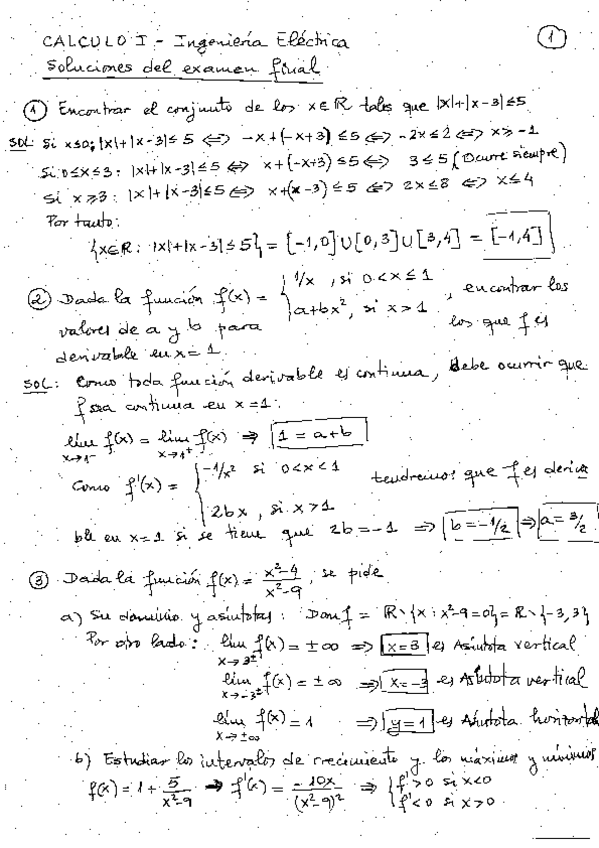 ①
CALCULO I - Ingeniería Eléctrica
Soluciones del examen final
① Encontrar el conjunto de los x∈ℝ tales que |x|+|x-3|≤5
SOL: Si x≤0: |x|+|x-3|≤5 ⇔ -x+(-x+3)≤5 ⇔ -2x≤2 ⇔ x≥-1
Si 0≤x≤3: |x|+|x-3|≤5 ⇔ x+(-x+3)≤5 ⇔ 3≤5 (Ocurre siempre)
Si x≥3: |x|+|x-3|≤5 ⇔ x+(x-3)≤5 ⇔ 2x≤8 ⇔ x≤4
Por tanto:
{x∈ℝ: |x|+|x-3|≤5} = [-1,0]∪[0,3]∪[3,4] = [-1,4]
② Dada la función f(x) = { 1/x, si 0<x≤1
a+bx², si x>1 , encontrar los
valores de a y b para los que f es
derivable en x=1.
SOL: Como toda función derivable es continua, debe ocurrir que
f sea continua en x=1:
lím f(x) = lím f(x) ⇒ 1=a+b
x→1⁻ x→1⁺
Como f'(x) = { -1/x² si 0<x<1
2bx, si x>1 tendremos que f es deriva
ble en x=1 si se tiene que 2b=-1 ⇒ b=-1/2 ⇒ a=3/2
③ Dada la función f(x) = x²-4 / x²-9, se pide
a) Su dominio y asíntotas: Dom f = ℝ\{x: x²-9=0} = ℝ\{-3,3}
Por otro lado: lím f(x) = ±∞ ⇒ x=3 es Asíntota vertical
x→3±
lím f(x) = ±∞ ⇒ x=-3 es Asíntota vertical
x→-3±
lím f(x) = 1 ⇒ y=1 es Asíntota horizontal
x→±∞
b) Estudiar los intervalos de crecimiento y los máximos y mínimos
f(x) = 1 + 5/x²-9 ⇒ f'(x) = -10x/(x²-9)² ⇒ { f'>0 si x<0
f'<0 si x>0.